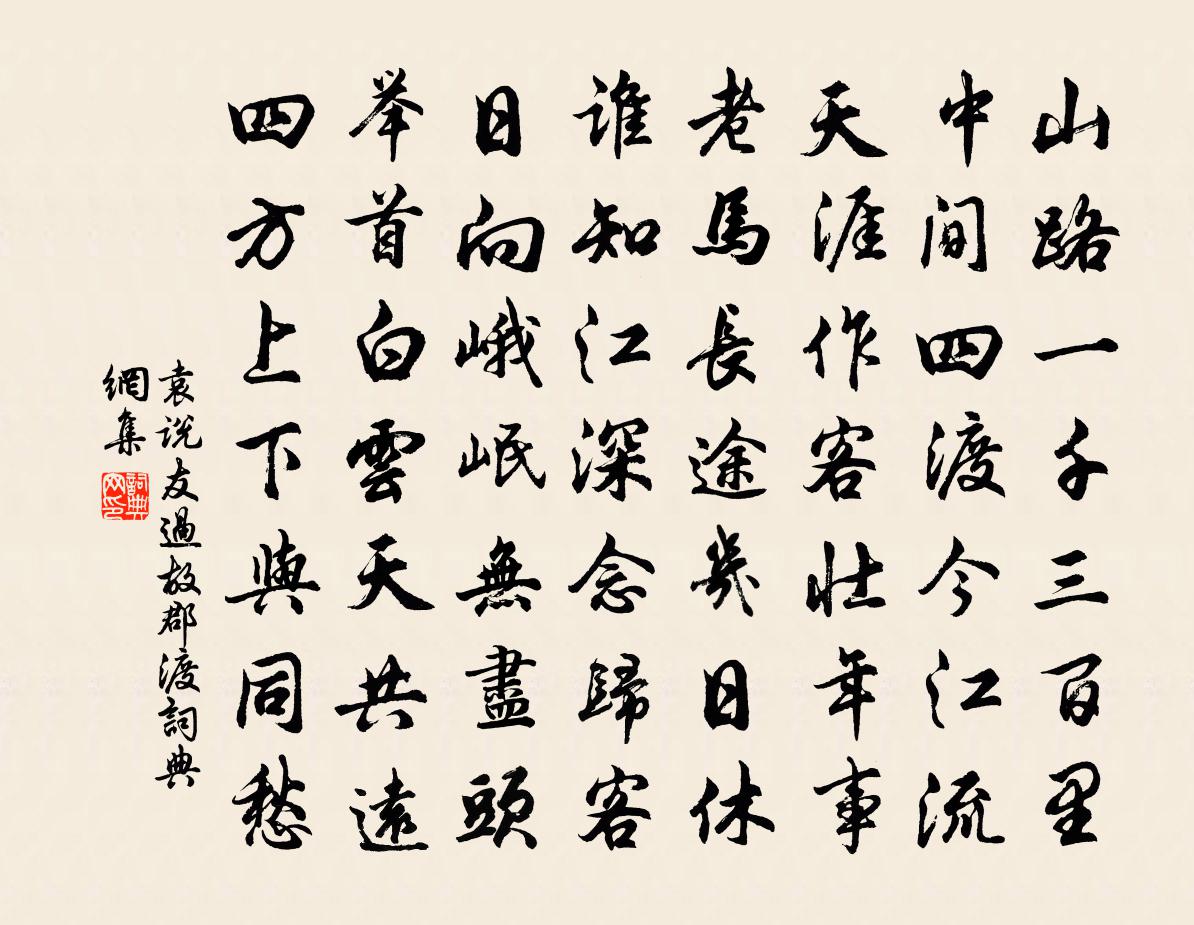 山路一千三百里
中间四渡今江流
天涯作客壮年事
老馬長途幾日休
谁知江深念歸客
日向峨岷無盡頭
举首白雲天共遠
四方上下與同愁
袁说友過故郡渡詞典
網集
詞典
网印